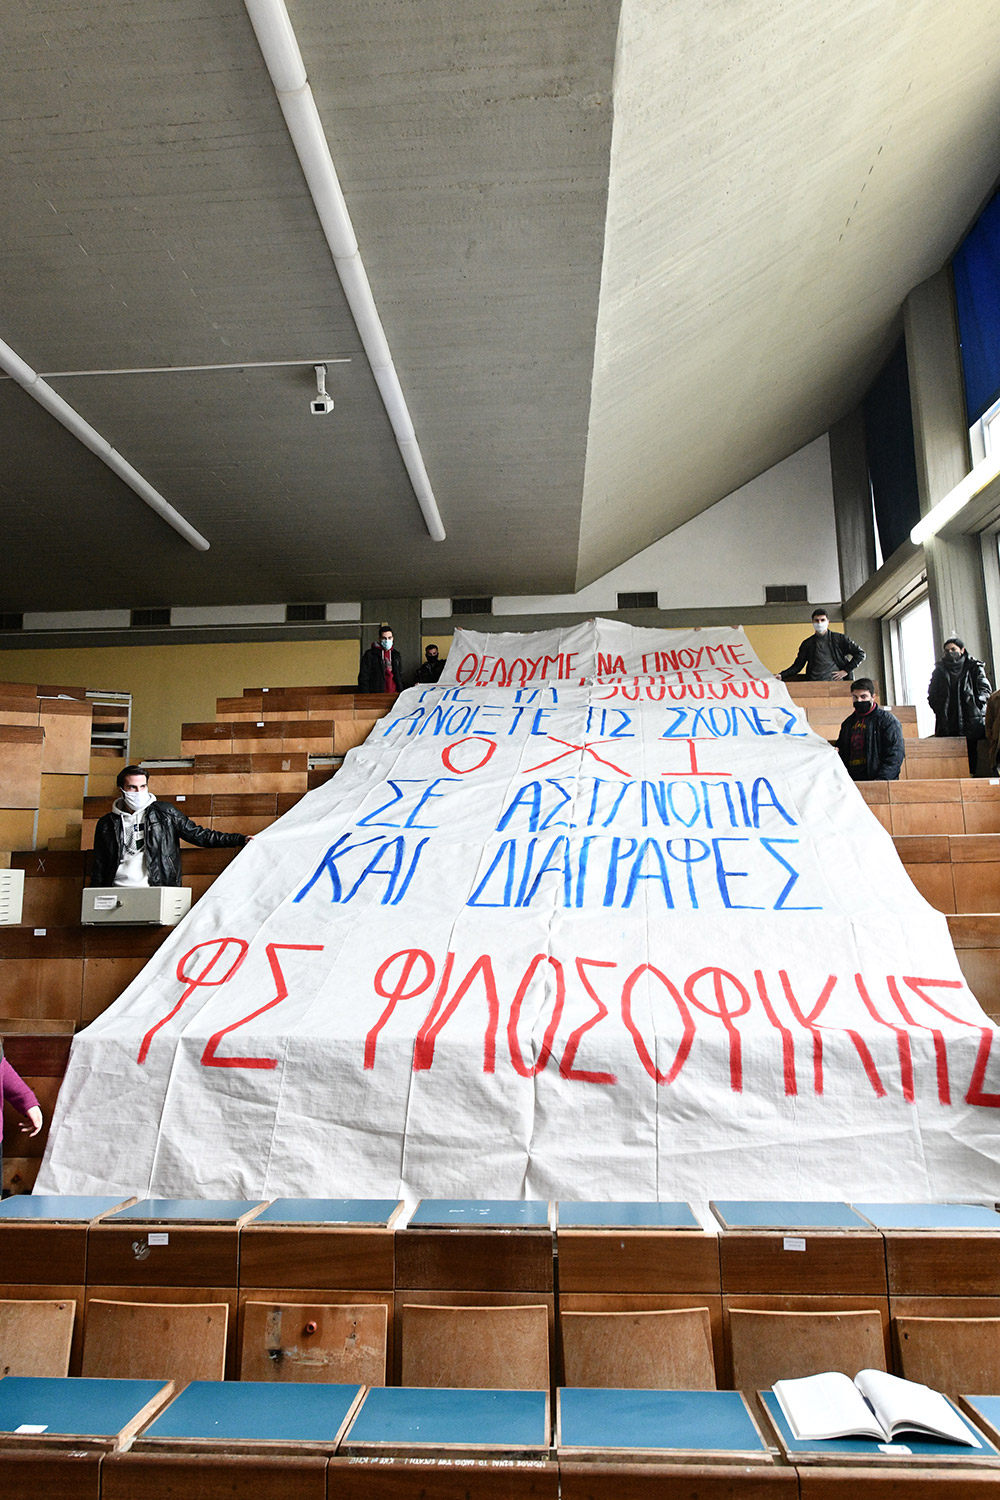 ΘΕΛΟΥΜΕ ΝΑ ΓΙΝΟΥΜΕ
ΜΕ ΤΑ 30.000.000
ΑΝΟΙΞΤΕ ΤΙΣ ΣΧΟΛΕΣ
ΟΧΙ
ΣΕ ΑΣΤΥΝΟΜΙΑ
ΚΑΙ ΔΙΑΓΡΑΦΕΣ
ΦΣ ΦΙΛΟΣΟΦΙΚΗΣ